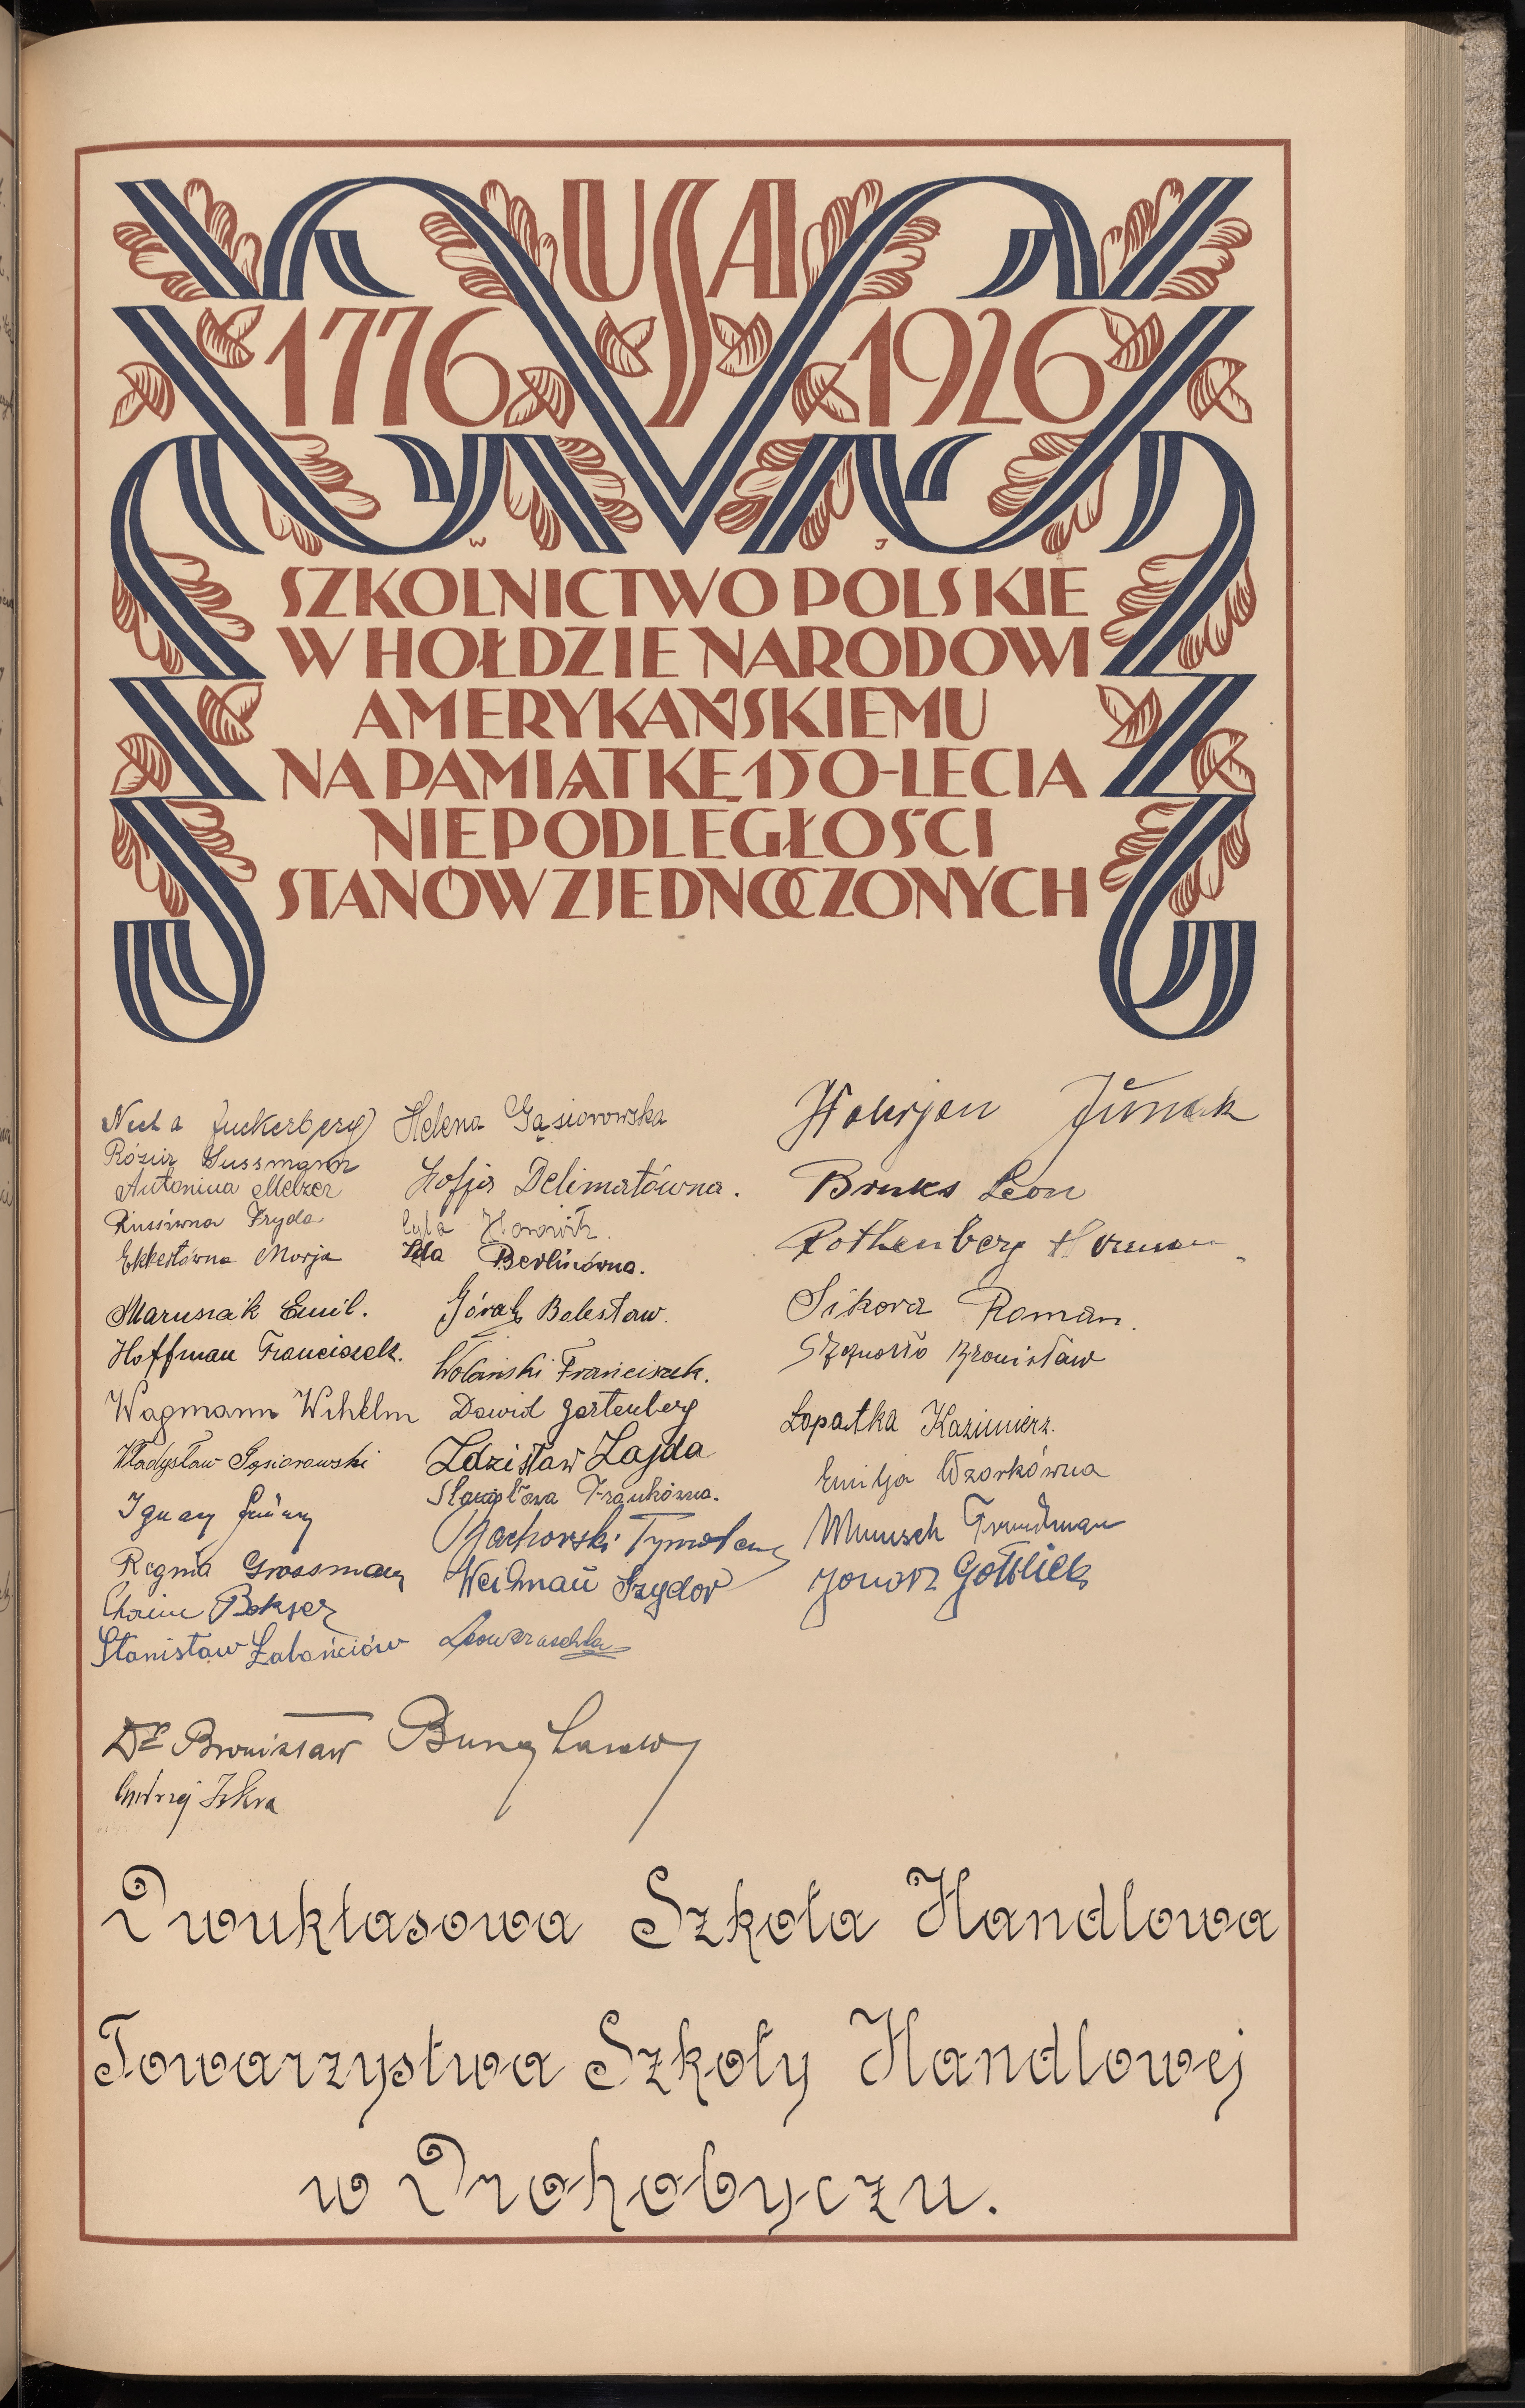 USA
1776 1926
W J
SZKOLNICTWO POLSKIE
W HOŁDZIE NARODOWI
AMERYKAŃSKIEMU
NA PAMIĄTKĘ 150-LECIA
NIEPODLEGŁOŚCI
STANÓW ZJEDNOCZONYCH
Necha Zuckerberg
Rózia Sussmann
Antonina Melzer
Fryda
Ekkertówna Marja
Marusiak Emil.
Hoffman Franciszek.
Wagmann Wihelm
Władysław Gąsiorowski
Ignacy
Regina Grossman
Chaim Bokser
Stanisław
Helena Gąsiorowska
Zofja Delimatówna.
Cyla Horowitz.
Ida Berlinówna.
Górak Bolesław.
Wolański Franciszek.
Dawid Gartenberg
Zdzisław Zajda
Frankówna.
Weidman Izydor
Junak
Bruks Leon
Rothenberg Herman
Sikora Roman.
Bronisław
Łopatka Kazimierz.
Emilja Wzorkówna
Munisch Freudman
Gottlieb
Dr Bronisław
Andrzej Iskra
Dwukłasowa Szkoła Handlowa
Towarzystwa Szkoły Handlowej
w Drohobyczu.